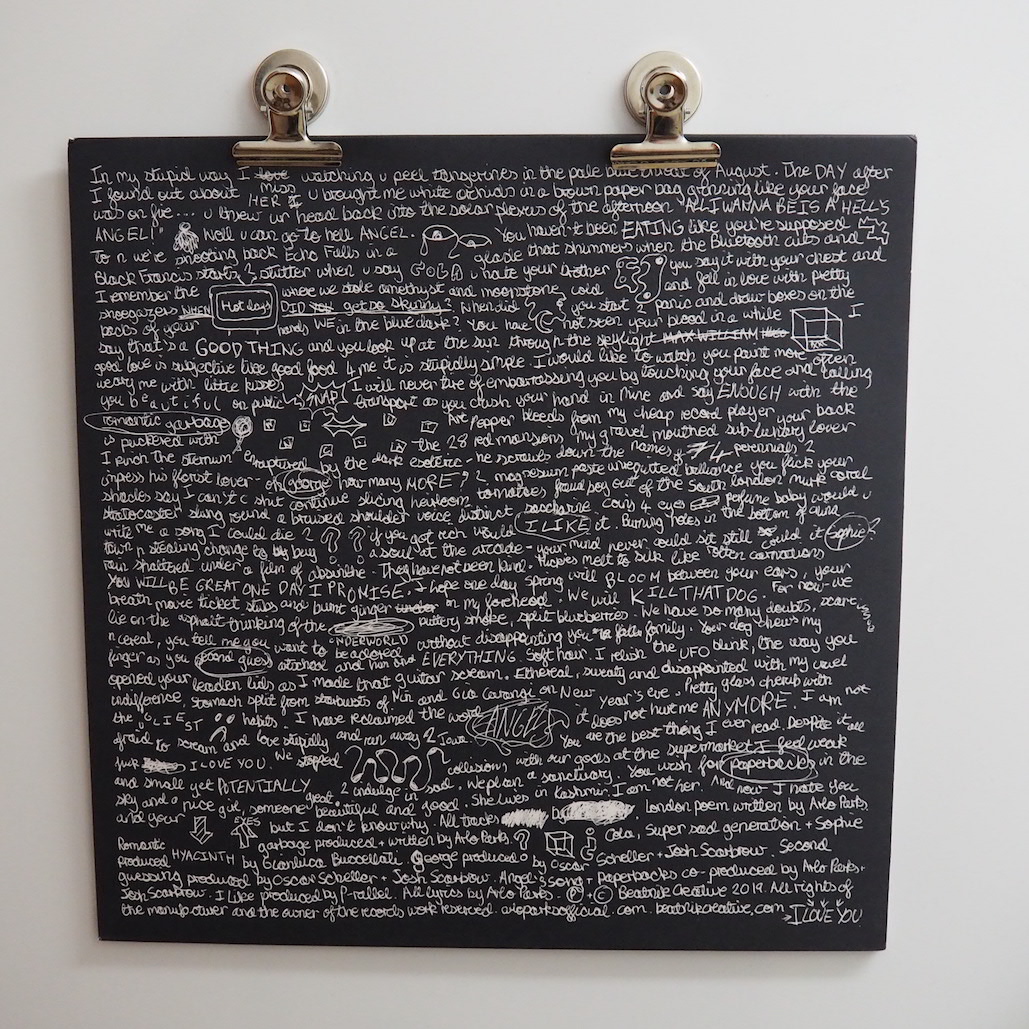 In my stupid way I love watching u peel tangerines in the pale throat of August. The DAY after
I found out about HER I miss u brought me white orchids in a brown paper bag grinning like your face
was on fire... u threw ur head back into the solar plexus of the afternoon "ALL I WANNA BE IS A HELL'S
ANGEL!" Well u can go to hell ANGEL. You haven't been EATING like you're supposed
to n we're shooting back Echo Falls in a glade that shimmers when the Bluetooth cuts and
Black Francis starts 2 stutter when u say COLA u hate your brother you say it with your chest and
I remember the where we stole amethyst and moonstone cold and fell in love with pretty
shoegazers WHEN Hot days DID YOU get so skinny? When did you start 2 panic and draw boxes on the
backs of your hands WE in the blue dark? You have not seen your blood in a while I
say that's a GOOD THING and you look up at the sun through the skylight MAX WILLIAM
good love is subjective like good food 4 me it is stupidly simple. I would like to watch you paint more often
weary me with little kisses I will never tire of embarrassing you by touching your face and calling
you beautiful on public SNAP transport as you crush your hand in mine and say ENOUGH with the
romantic garbage Art Pepper bleeds from my cheap record player your back
is puckered with the 28 red mansions, my gravel mouthed sub-luxury lover
I kiss the sternum enraptured by the dark esoteric - he scrawls down the names of 74 perennials 2
impress his florist lover - of george how many MORE? 2 magnesium paste unrequited brilliance you fuck your
shades say I can't c shit continue slicing heirloom tomatoes, fraud boy out of the South London murk coral
stratocaster slung round a bruised shoulder voice distinct saccharine coins 4 eyes perfume baby would u
write me a song I could die? ? ? if you got rich would I LIKE it. Burning holes in the bottom of
town n stealing change to buy a soul at the arcade - your mind never could sit still could it Sophie?
rain shattered under a film of absinthe. They have not been kind. Thighs melt to silk like bitter carnations
YOU WILL BE GREAT ONE DAY I PROMISE. I hope one day spring will BLOOM between your ears, your
breath move ticket stubs and burnt ginger on my forehead. We will KILL THAT DOG. For now - we
lie on the asphalt thinking of the buttery smoke, split blueberries. We have so many doubts, scare
n cereal, you tell me you want to be adored UNDERWORLD without disappointing your family. Your dog chews my
finger as you second guess attached and run and EVERYTHING. Soft hour. I relish the UFO blink, the way you
opened your leaden lids as I made that guitar scream. Ethereal, sweaty and disappointed with my cruel
indifference, stomach split from starbursts of Nin and Gia Carangi on New Year's eve. Pretty glass cherub with
the UGLIEST habits. I have reclaimed the word ANGEL it does not hurt me ANYMORE. I am not
afraid to scream and love stupidly and run away 2 You are the best thing I ever read. Despite it all
fuck I LOVE YOU. We stopped collisions, with our goals at the supermarket I feel weak
and small yet POTENTIALLY good. 2 indulge in We plan a sanctuary. You wish for paperbacks in the
sky and a nice girl, someone beautiful and good. She lives in Kashmir I am not her. And now I hate you
and your YES but I don't know why. All tracks by London poem written by Arlo Parks
Romantic garbage produced + written by Arlo Parks ? Cola, Super sad generation + Sophie
produced HYACINTH by Gianluca Buccellati. George produced by Oscar Scheller + Josh Scarbrow. Second
guessing produced by Oscar Scheller + Josh Scarbrow. Angel's song + Paperbacks co-produced by Arlo Parks +
Josh Scarbrow. I Like produced by P-rallel. All lyrics by Arlo Parks. Ⓟ + © Beatnik Creative 2019. All rights of
the manufacturer and the owner of the records work reserved. arloparksofficial.com beatnikcreative.com → I LOVE YOU